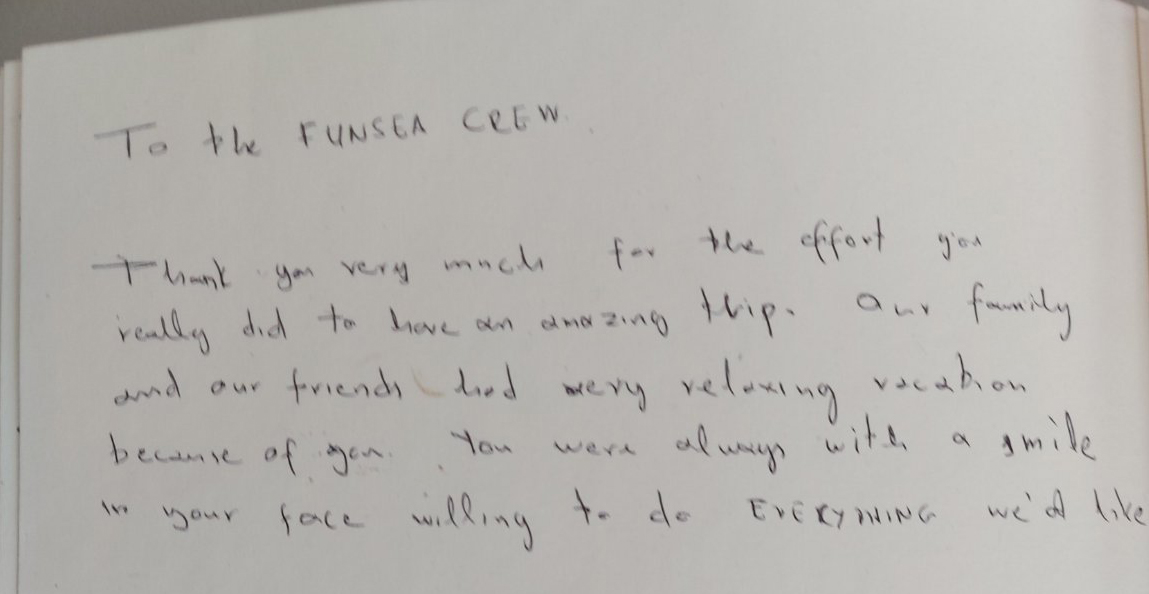 To the FUNSEA CREW.
Thank you very much for the effort you
really did to have an amazing thip. Our family
and our friends had very relaxing vacation
because of you. You were always with a smile
in your face willing to do EVERYTHING we'd like